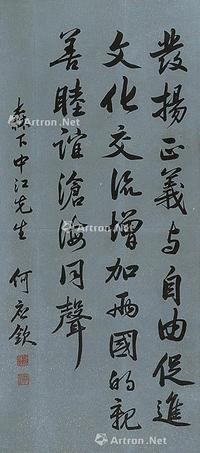 發揚正義与自由促進
文化交流增加兩國的親
善睦誼滄海同聲
森下中江先生
何應欽
Artron.Net
Artron.Net
Artron.Net
Artron.Net